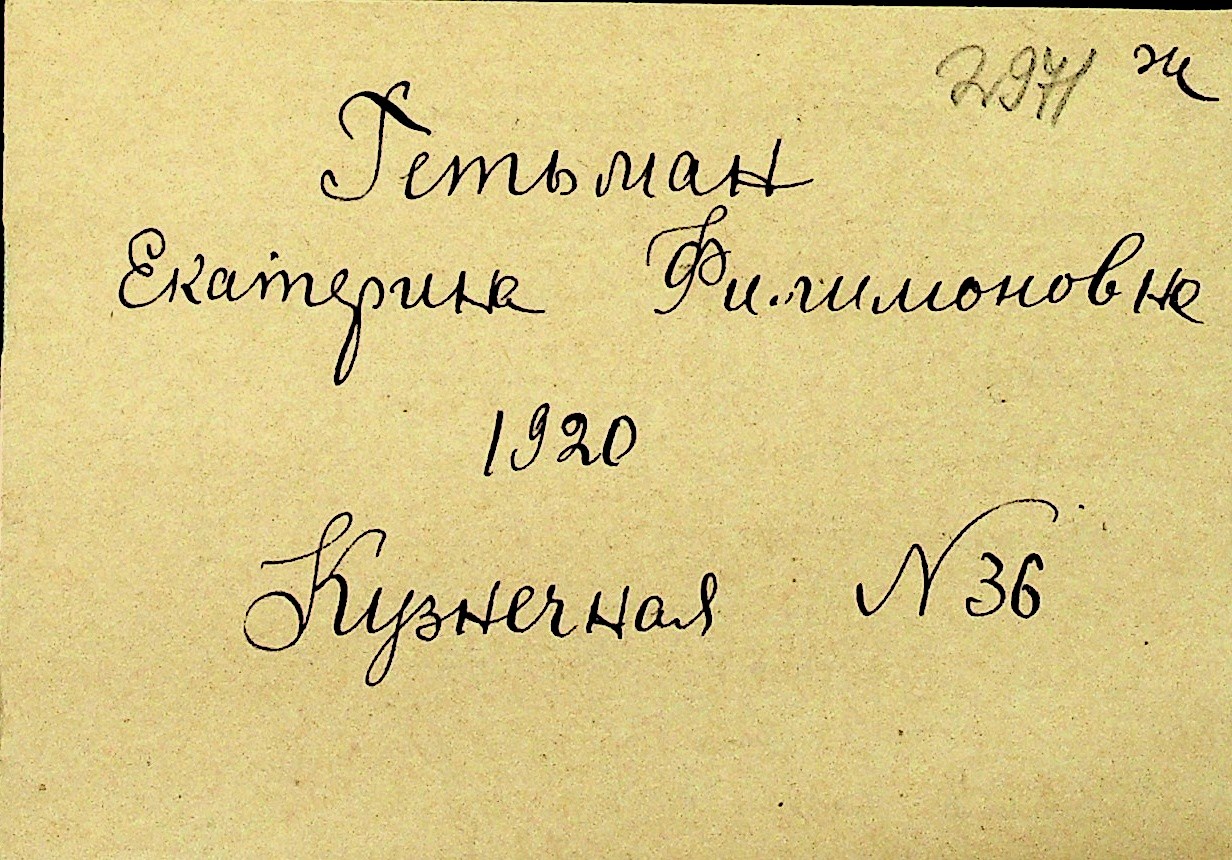 2971 ж
Гетьман
Екатерина Филимоновна
1920
Кузнечная N 36